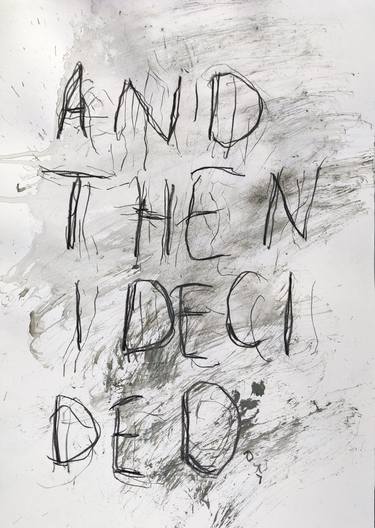 AND
THEN
I DECI
DED